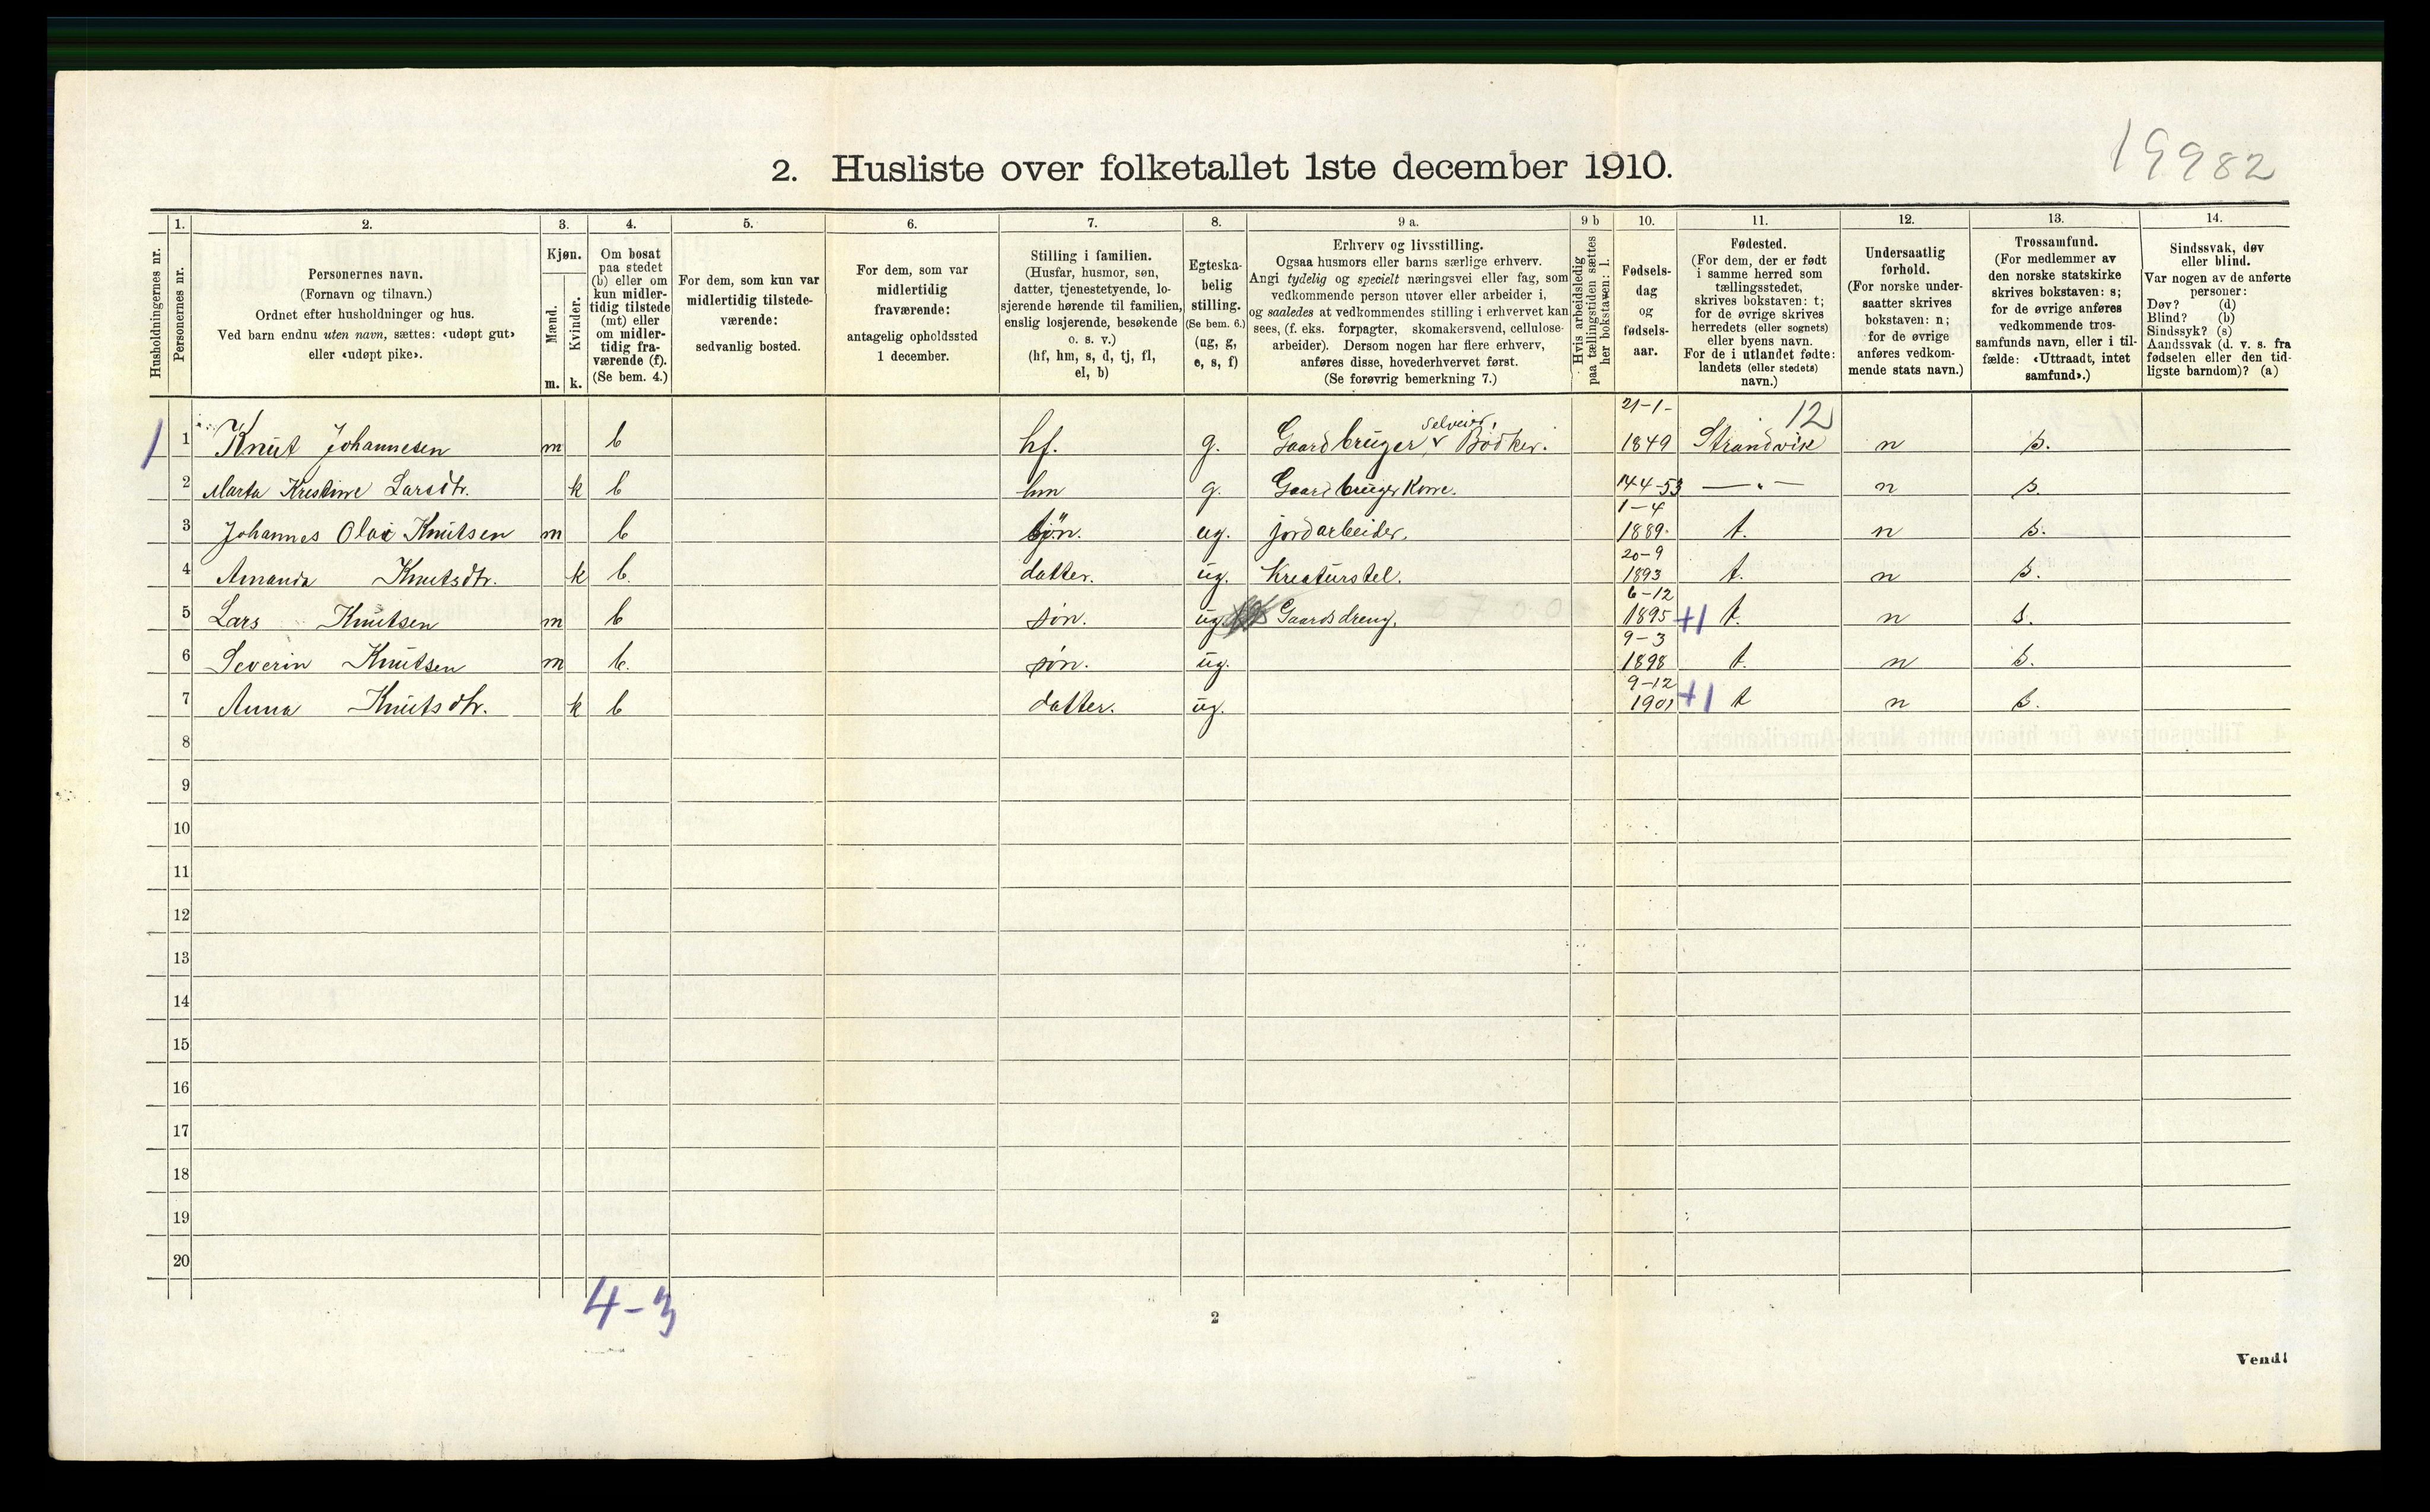 19982
2. Husliste over folketallet 1ste december 1910.
1. 2. 3. 4. 5. 6. 7. 8. 9 a. 9 b 10. 11. 12. 13. 14.
Husholdningernes nr.
Personernes nr.
Personernes navn.
(Fornavn og tilnavn.)
Ordnet efter husholdninger og hus.
Ved barn endnu uten navn, sættes: «udøpt gut»
eller «udøpt pike».
Kjøn.
Mænd.
Kvinder.
m. k.
Om bosat
paa stedet
(b) eller om
kun midler-
tidig tilstede
(mt) eller
om midler-
tidig fra-
værende (f).
(Se bem. 4.)
For dem, som kun var
midlertidig tilstede-
værende:
sedvanlig bosted.
For dem, som var
midlertidig
fraværende:
antagelig opholdssted
1 december.
Stilling i familien.
(Husfar, husmor, søn,
datter, tjenestetyende, lo-
sjerende hørende til familien,
enslig losjerende, besøkende
o. s. v.)
(hf, hm, s, d, tj, fl,
el, b)
Egteska-
belig
stilling.
(Se bem. 6.)
(ug, g,
e, s, f)
Erhverv og livsstilling.
Ogsaa husmors eller barns særlige erhverv.
Angi tydelig og specielt næringsvei eller fag, som
vedkommende person utøver eller arbeider i,
og saaledes at vedkommendes stilling i erhvervet kan
sees, (f. eks. forpagter, skomakersvend, cellulose-
arbeider). Dersom nogen har flere erhverv,
anføres disse, hovederhvervet først.
(Se forøvrig bemerkning 7.)
Hvis arbeidsledig
paa tællingstiden sættes
her bokstaven: l.
Fødsels-
dag
og
fødsels-
aar.
Fødested.
(For dem, der er født
i samme herred som
tællingsstedet,
skrives bokstaven: t;
for de øvrige skrives
herredets (eller sognets)
eller byens navn.
For de i utlandet fødte:
landets (eller stedets)
navn.)
Undersaatlig
forhold.
(For norske under-
saatter skrives
bokstaven: n;
for de øvrige
anføres vedkom-
mende stats navn.)
Trossamfund.
(For medlemmer av
den norske statskirke
skrives bokstaven: s;
for de øvrige anføres
vedkommende tros-
samfunds navn, eller i til-
fælde: «Uttraadt, intet
samfund».)
Sindssvak, døv
eller blind.
Var nogen av de anførte
personer:
Døv? (d)
Blind? (b)
Sindssyk? (s)
Aandssvak (d. v. s. fra
fødselen eller den tid-
ligste barndom)? (a)
21-1- 12
Selveier,
1 1 Knut Johannesen m b hf. g. Gaardbruger v Bødker. 1849 Strandvik n s.
2 Marta Kristine Larsdtr. k b hm g. Gaardbruger Kone. 14 4-53 — " — n s.
1-4
3 Johannes Olai Knutsen m b søn. ug. jordarbeider. 1889. t. n s.
20-9
4 Amanda Knutsdtr. k b. datter. ug. Kreaturstel. 1893 t. n s.
6-12
5 Lars Knutsen m b søn. ug. Gaardsdreng. 1895 +1 t. n s.
9-3
6 Severin Knutsen m b. søn. ug. 1898 t. n s.
9-12
7 Anna Knutsdtr. k b datter. ug. 1901 +1 t n s.
8
9
10
11
12
13
14
15
16
17
18
19
20
4-3
2
Vend!